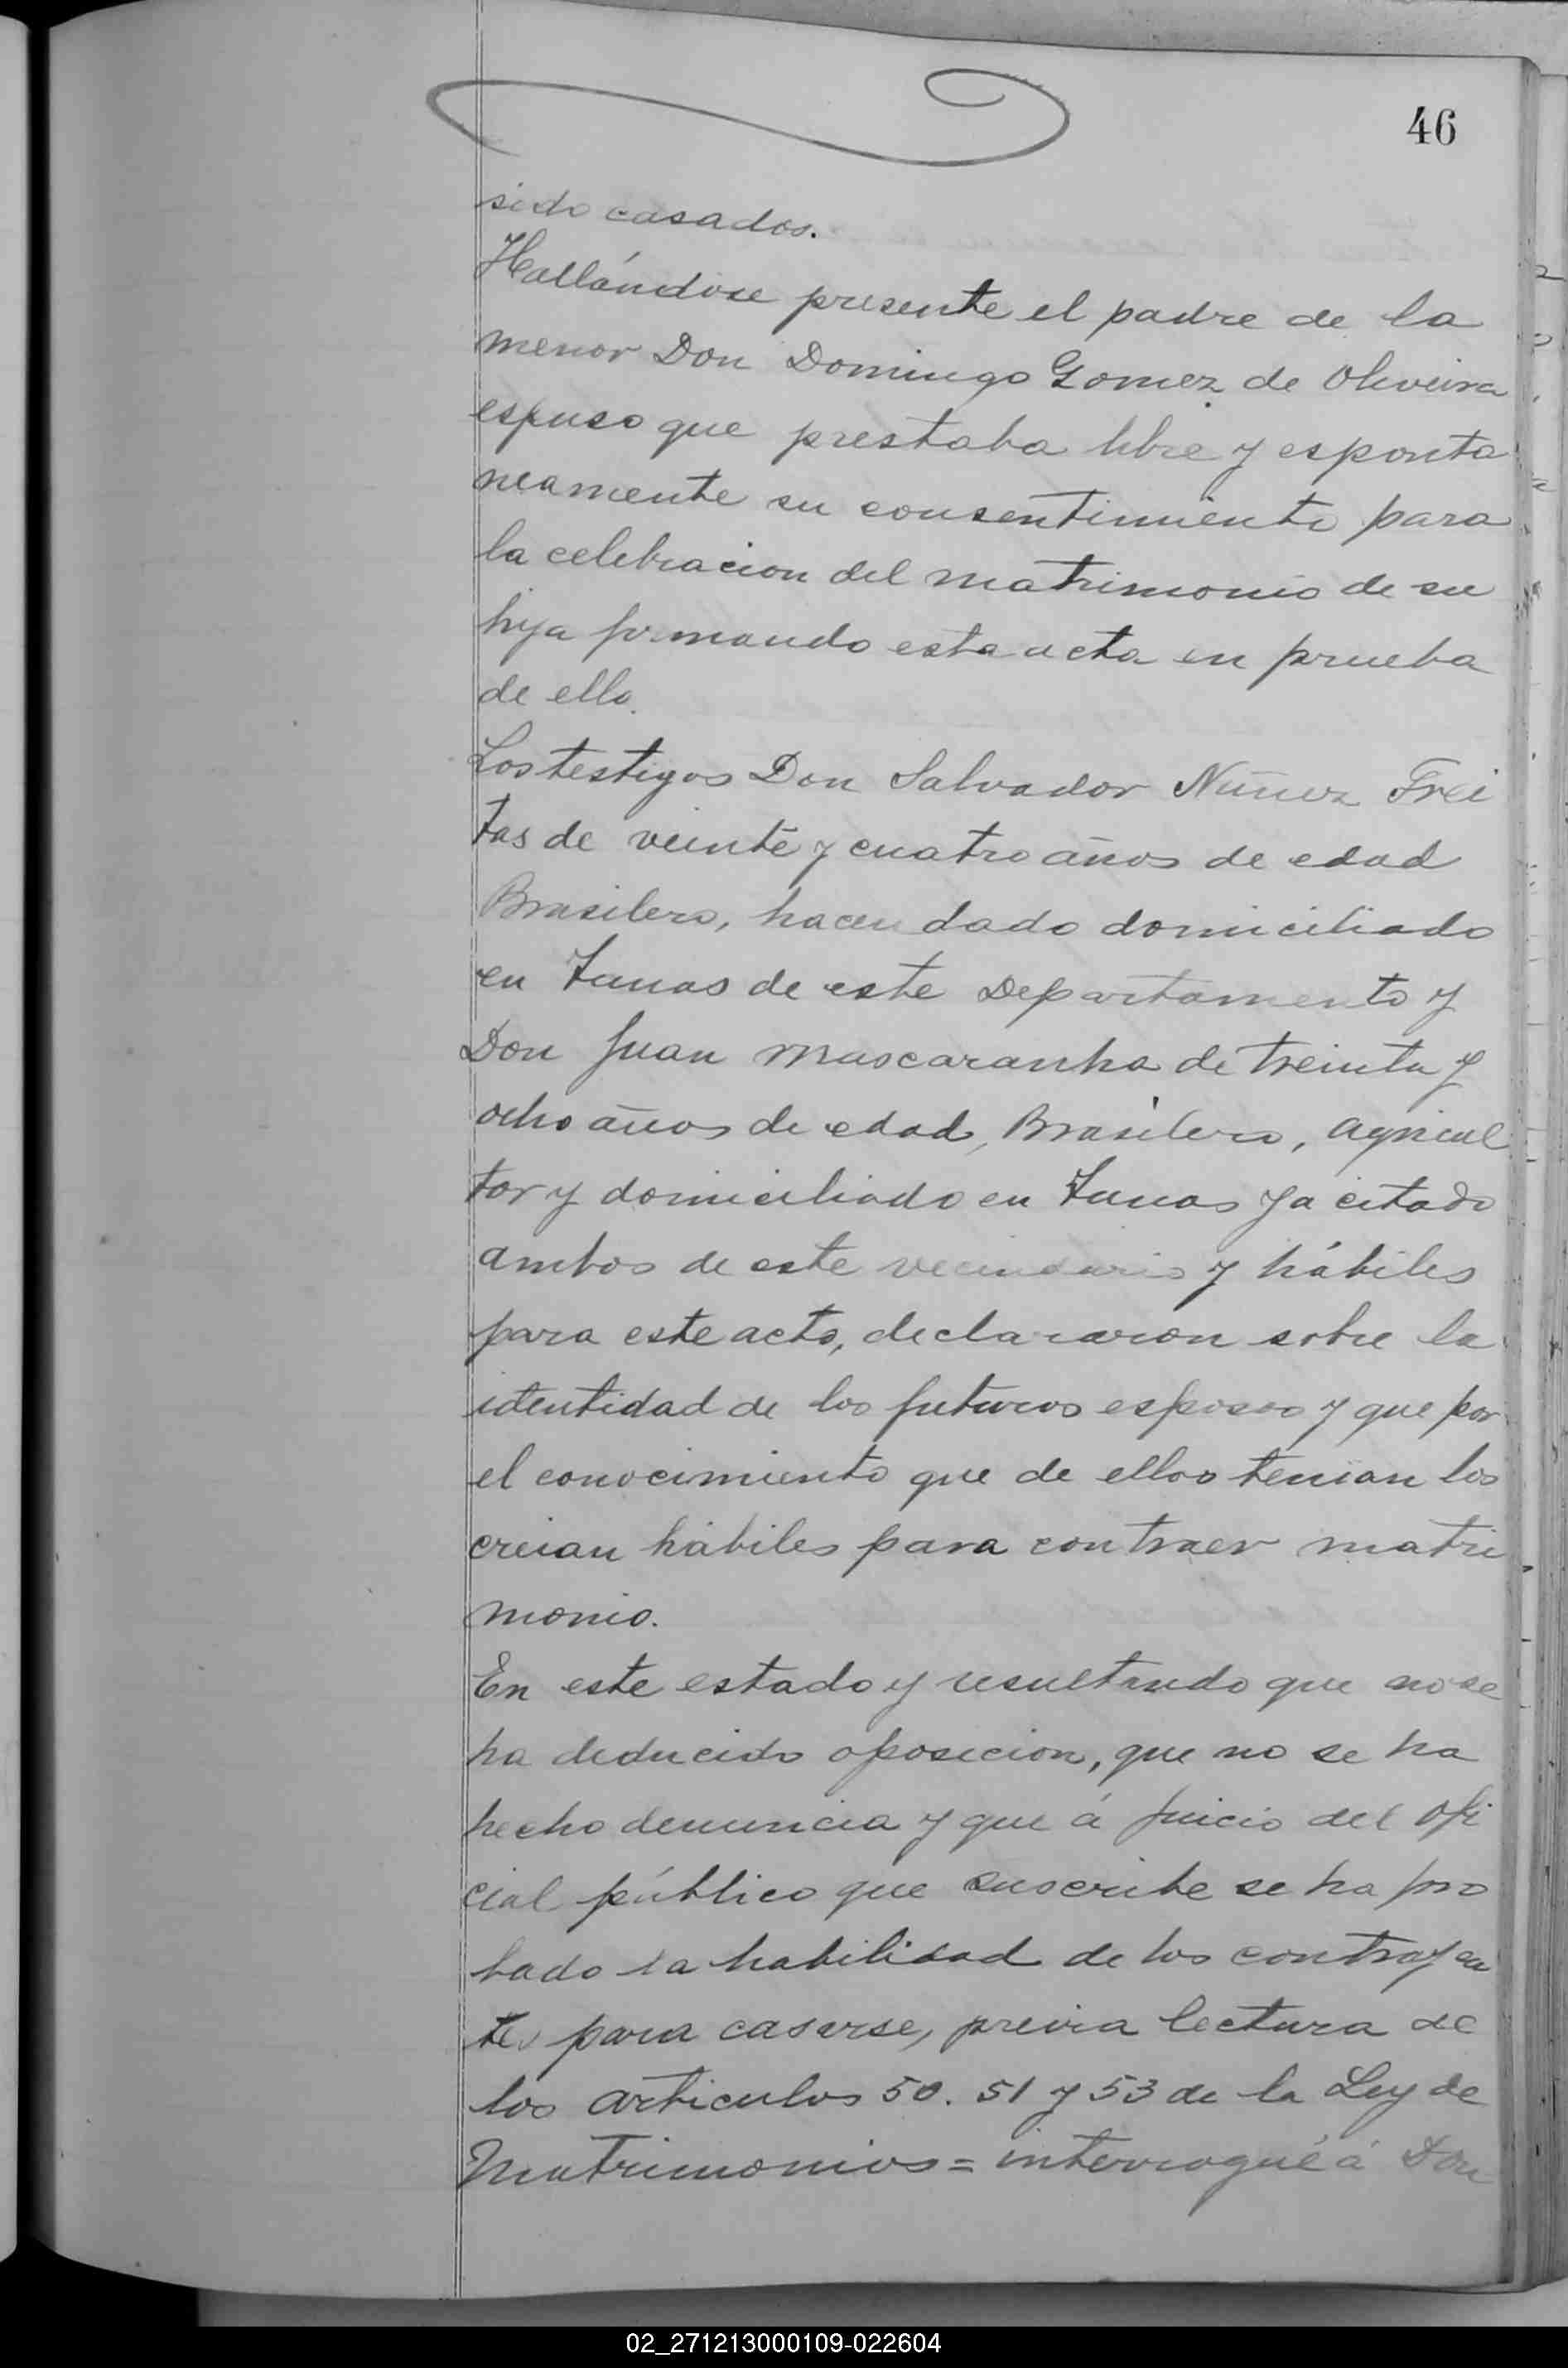 46
sido casados.
Hallándose presente el padre de la
menor Don Domingo Gomez de Oliveira
espuso que prestaba libre y esponta
neamente su consentimiento para
la celebracion del matrimonio de su
hija firmando esta acta en prueba
de ello.
Los testigos Don Salvador Nuñez Frei
tas de veinte y cuatro años de edad
Brasilero, hacendado domiciliado
en Yunas de este Departamento y
Don Juan Mascaranha de treinta y
ocho años de edad, Brasilero, agricul
tor y domiciliado en Yunas ya citado
ambos de este vecindario y hábiles
para este acto, declararon sobre la
identidad de los futuros esposos y que por
el conocimiento que de ellos tenian los
creian hábiles para contraer matri
monio.
En este estado y resultando que no se
ha deducido oposicion, que no se ha
hecho denuncia y que á juicio del ofi
cial público que suscribe se ha pro
bado la habilidad de los contrayen
tes para casarse, previa lectura de
los articulos 50. 51 y 53 de la Ley de
Matrimonios = interrogué á Don
02_271213000109-022604